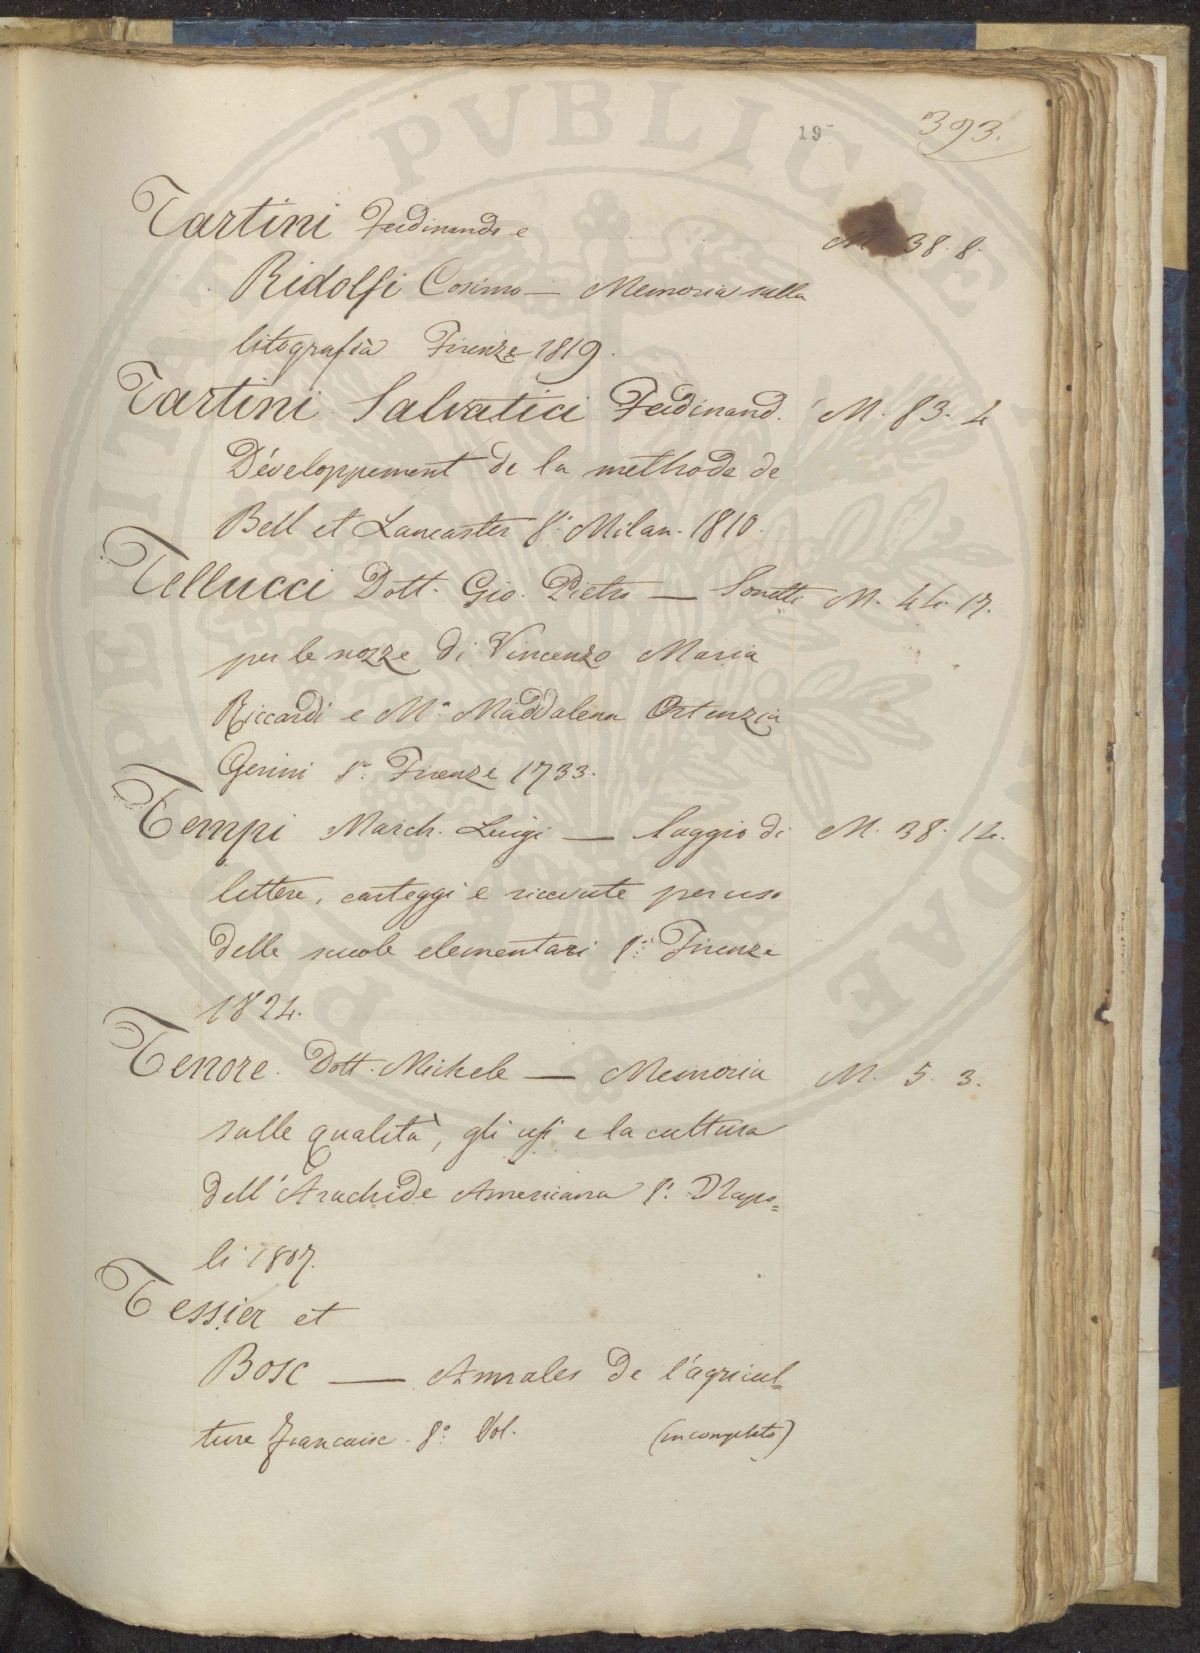 19
393.
Tartini Ferdinando e M. 38. 8.
Ridolfi Cosimo — Memoria sulla
litografia Firenze 1819.
Tartini Salvatici Ferdinand. M. 83. 4
Développement de la methode de
Bell et Lancaster 8.° Milan. 1810.
Tellucci Dott. Gio. Pietro — Sonetti M. 44. 17.
per le nozze di Vincenzo Maria
Riccardi e M.a Maddalena Ortenzia
Gerini 8.° Firenze 1733.
Tempi March. Luigi — Saggio di M. 38. 14.
lettere, carteggi e ricevute per uso
delle scuole elementari 8.° Firenze
1824.
Tenore. Dott. Michele — Memoria M. 5. 3.
sulle qualità, gli usi e la cultura
dell'Arachide Americana 8.° Napo=
li 1807.
Tessier et
Bosc — Annales de l'agricul=
ture francaise. 8.° Vol. (incompleto)
PUBLICAE UTILITATI